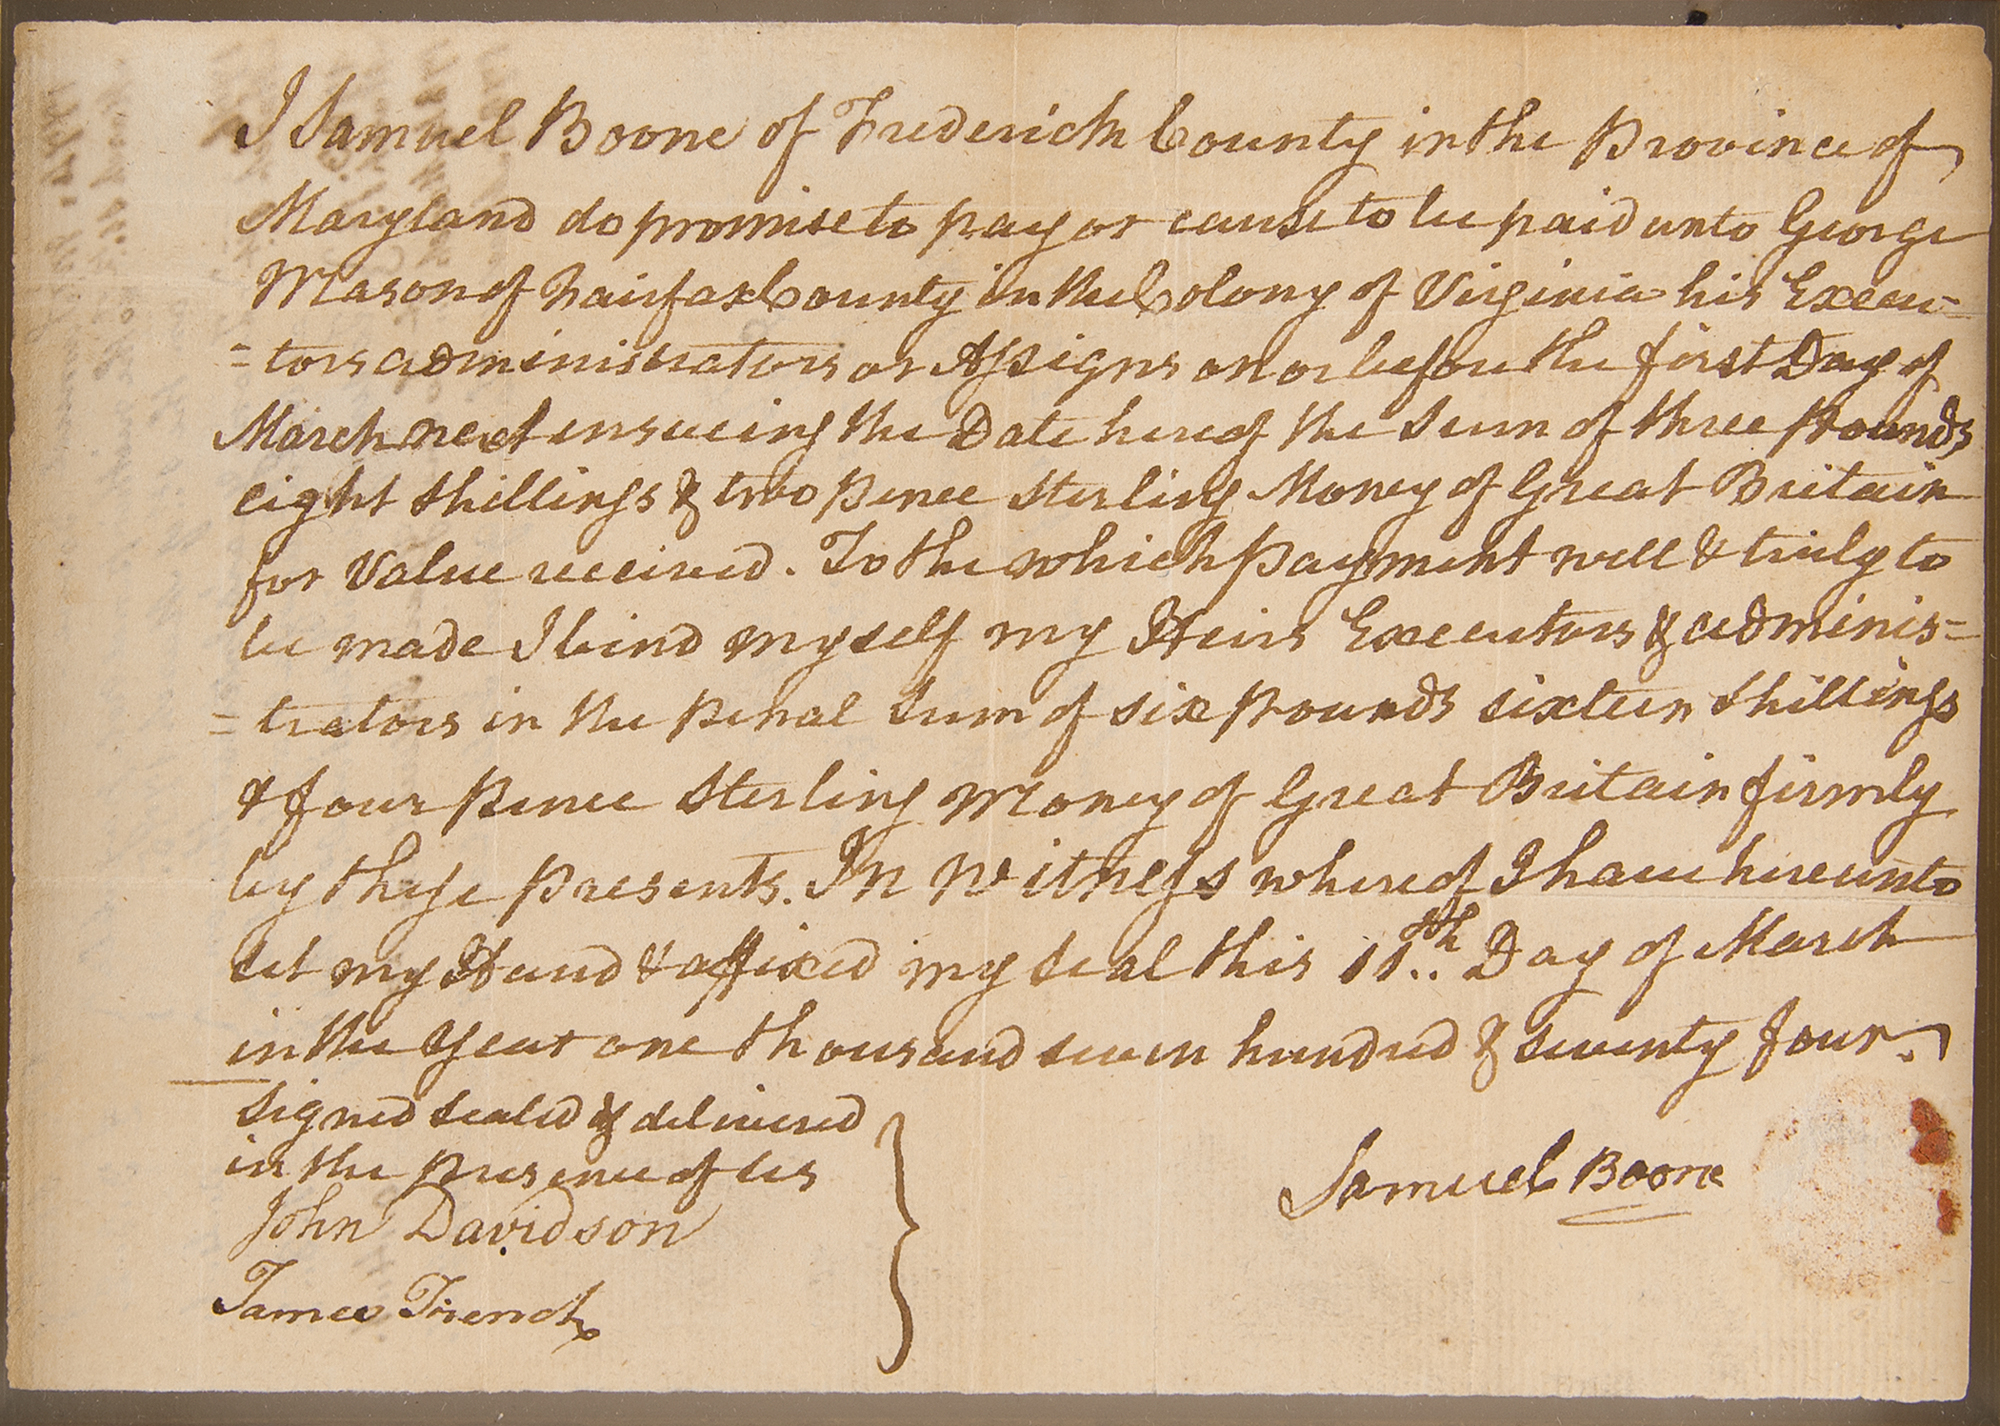 I Samuel Boone of Frederick County in the Province of
Maryland do promise to pay or cause to be paid unto George
Mason of Fairfax County in the Colony of Virginia his Execu-
=tors administrators or Assigns on or before the first Day of
March next ensueing the Date hereof the Sum of three Pounds
eight Shillings & two Pence Sterling Money of Great Britain
for Value received. To the which Payment well & truly to
be made I bind myself my Heirs Executors & adminis=
=trators in the Penal Sum of six Pounds sixteen Shillings
& four Pence Sterling Money of Great Britain firmly
by these Presents. In Witness whereof I have hereunto
set my Hand & affixed my Seal this 11th Day of March
in the Year one thousand seven hundred & seventy four.
Signed Sealed & delivered
in the Presence of us
John Davidson
James French
Samuel Boone